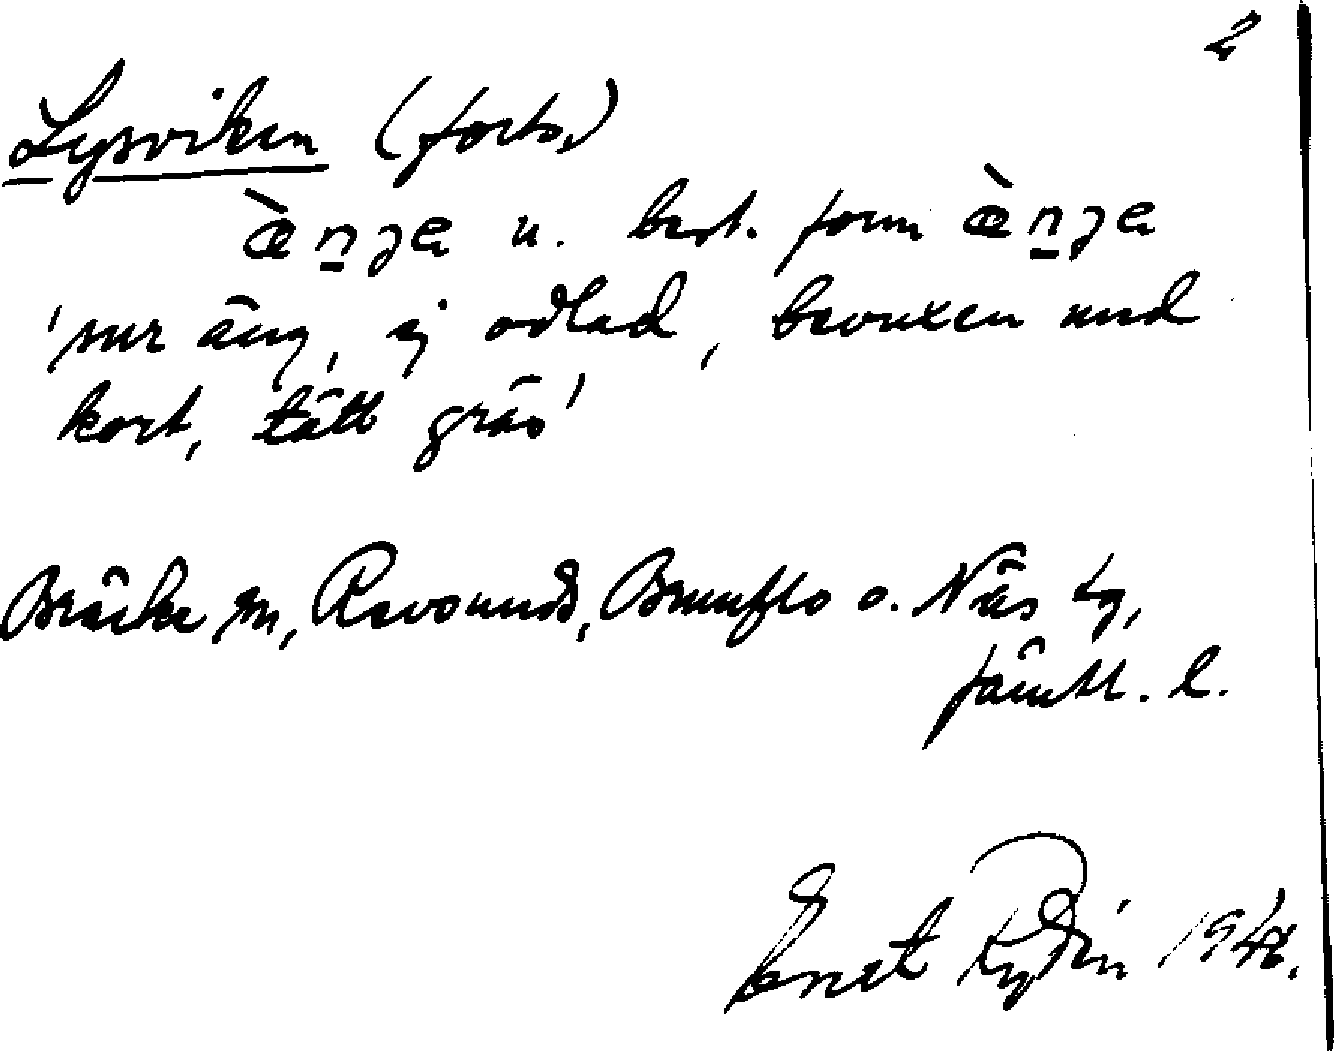 2
Lysviken (forts.)
æ̀n̠ja n. best. form æ̀n̠ja
'sur äng, ej odlad, bevuxen med
kort, tätt gräs'
Bräcke m, Revsunds, Brunflo o. Näs tg,
Jämtl. l.
Ernst Rydin 194